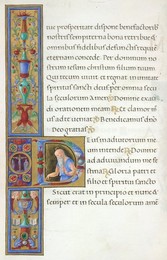 tue prosperitate dispone benefactorib
nostris sempiterna bona retribue &
omnibus fidelibus defunctis requiē
eternam concede. Per dominum no
strum iesum christum filium tuum
Qui tecum uiuit et regnat in unitate
spiritus sancti deus per omnia secu
la seculorum Amen. Domine exau
di orationem meam. Et clamor m
eus ad te ueniat. Benedicamus dn̄o
Deo gratias
Deus in adiutorium me
um intende. Domine
ad adiuuandum me fes
tina. Gloria patri et
filio et spiritui sancto
Sicut erat in principio et nunc &
semper et in secula seculorum amē